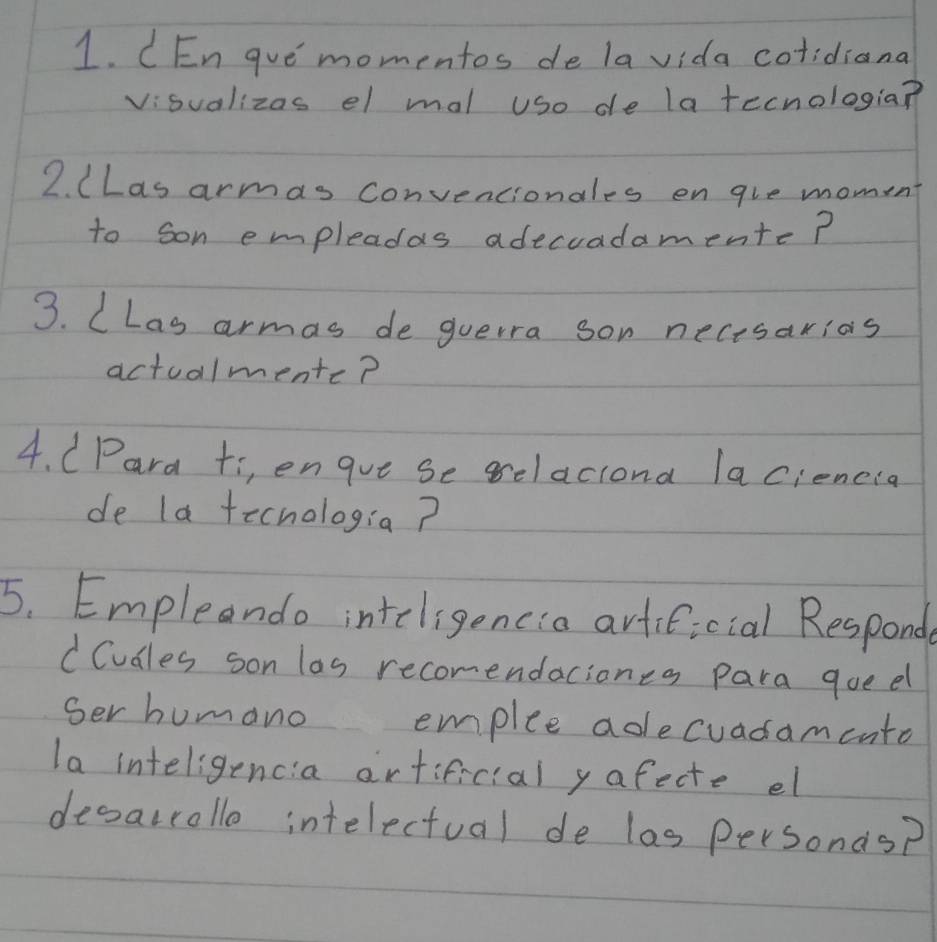 1. ¿En qué momentos de la vida cotidiana
visualizas el mal uso de la tecnologia?
2. ¿Las armas convencionales en que momen
to son empleadas adecuadamente?
3. ¿Las armas de guerra son necesarias
actualmente?
4. ¿Para ti, en que se relaciona la ciencia
de la tecnologia?
5. Empleando inteligencia artificial Responde
¿Cuáles son las recomendaciones para que el
ser humano emplee adecuadamente
la inteligencia artificial y afecte el
desarrollo intelectual de las personas?